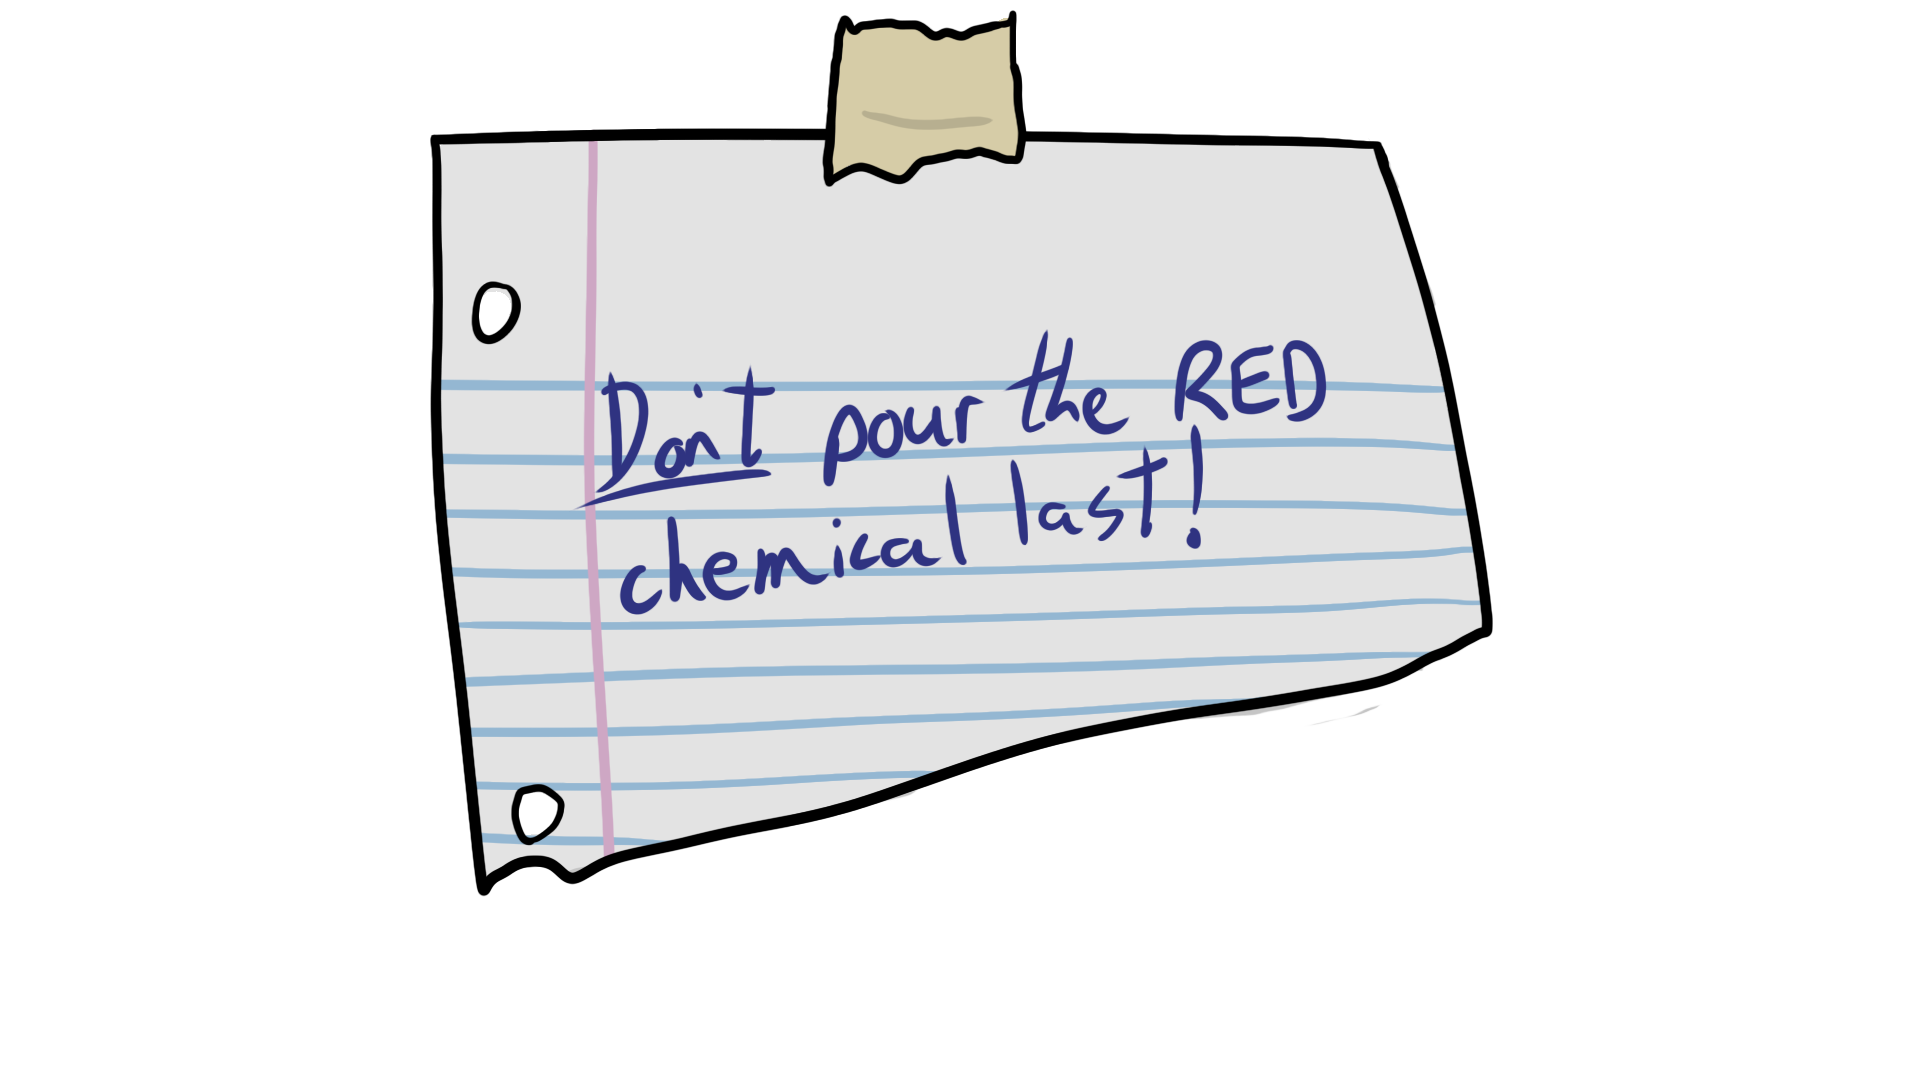 Don't pour the RED
chemical last!